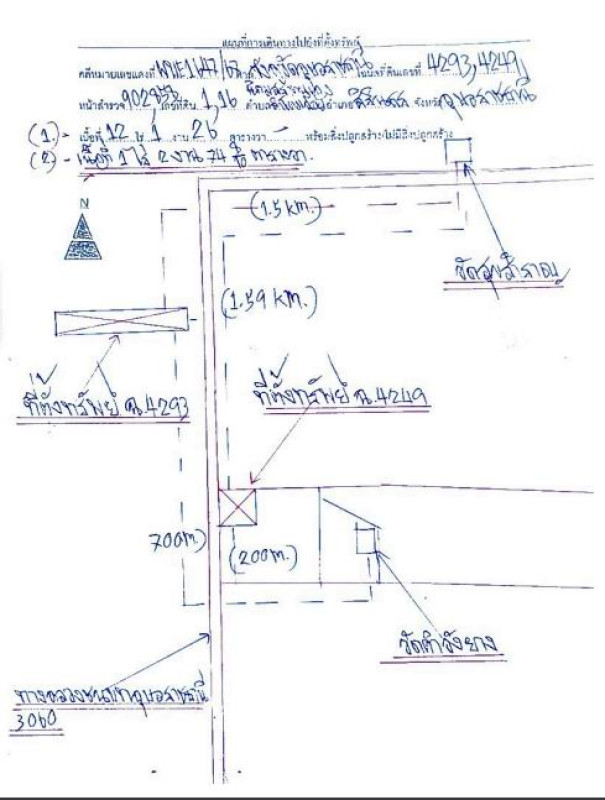 แผนที่การเดินทางไปยังที่ตั้งทรัพย์
คดีหมายเลขแดงที่ ศาลจังหวัดอุบลราชธานี โฉนดที่ดินเลขที่ 4293,4249
หน้าสำรวจ เลขที่ดิน 1,16 ตำบล อำเภอ สิรินธร จังหวัด อุบลราชธานี
(1.) - เนื้อที่ 12 ไร่ 1 งาน 26 ตารางวา - พร้อมสิ่งปลูกสร้าง/ไม่มีสิ่งปลูกสร้าง
(2) - เนื้อที่ 1 ไร่ 2 งาน 74 ตารางวา.
N
(1.5 km.)
วัดสุขสำราญ
(1.59 km.)
ที่ตั้งทรัพย์ ฉ.4293
ที่ตั้งทรัพย์ ฉ.4249
700m)
(200m.)
วัดคำวังยาง
3060